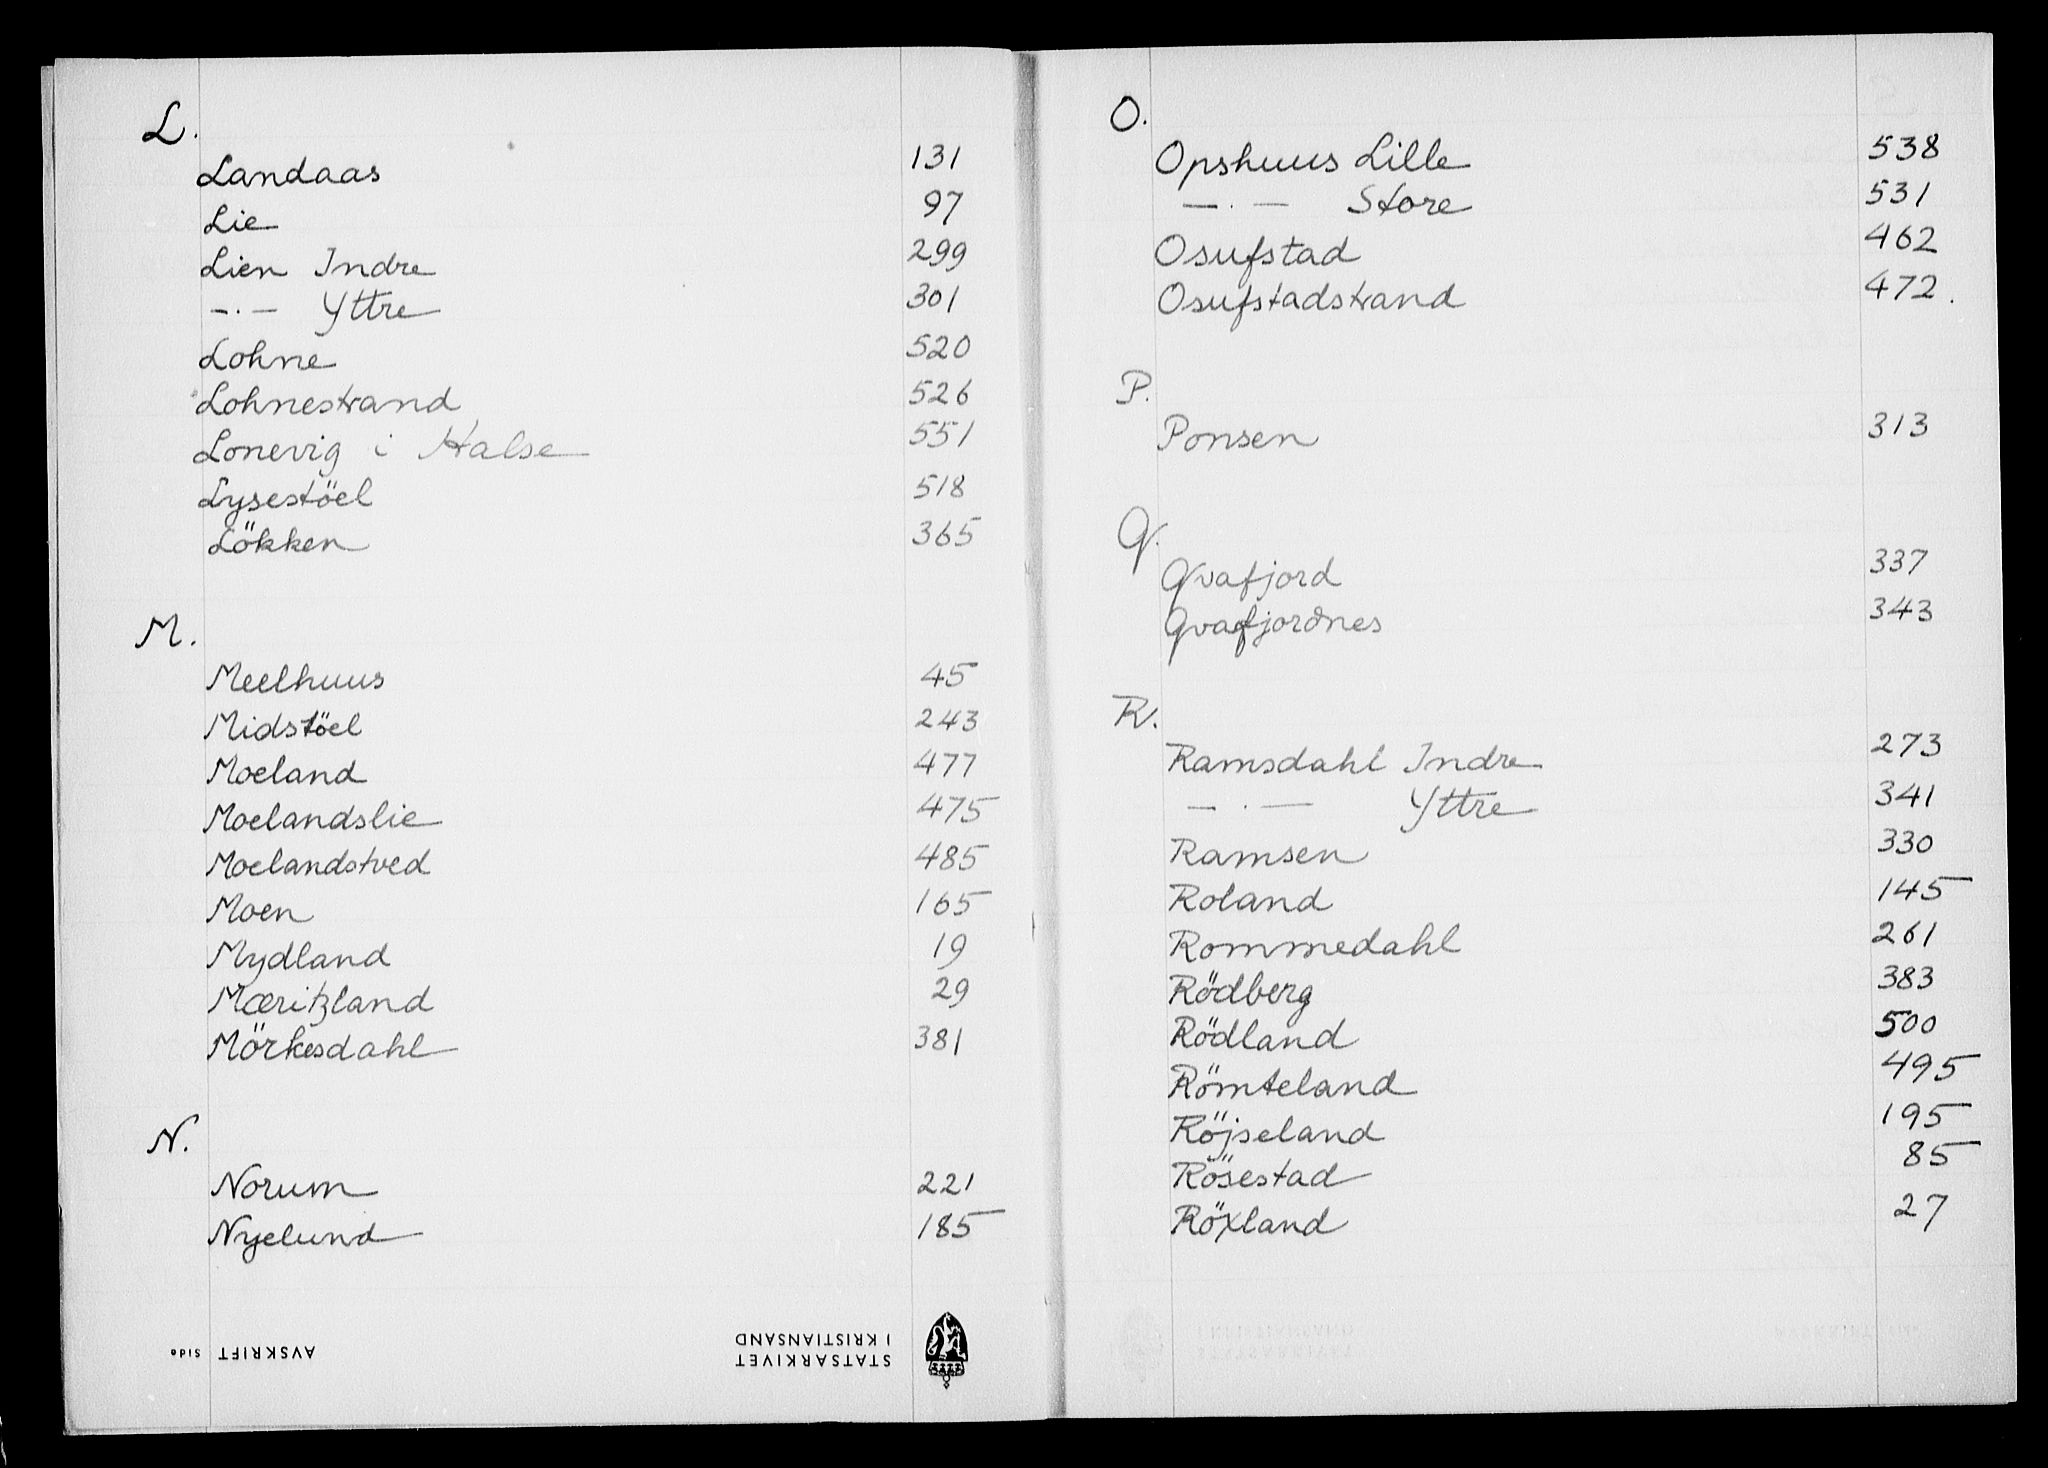 L.
Landaas 131
Lie 97
Lien Indre 299
-.- Yttre 301
Lohne 520
Lohnestrand 526
Lonevig i Halse 551
Lysestöel 518
Lökken 365
M.
Meelhuus 45
Midstöel 243
Moeland 477
Moelandslie 475
Moelandstved 485
Moen 165
Mydland 19
Mæritzland 29
Mörkesdahl 381
N.
Norum 221
Nyelund 185
STATSARKIVET
I KRISTIANSAND
AVSKRIFT Side
O.
Opshuus Lille 538
-.- Store 531
Osufstad 462
Osufstadstrand 472.
P.
Ponsen 313
Q.
Qvafjord 337
Qvafjordnes 343
R.
Ramsdahl Indre 273
-.- Yttre 341
Ramsen 330
Roland 145
Rommedahl 261
Rödberg 383
Rödland 500
Römteland 495
Röjseland 195
Rösestad 85
Röxland 27